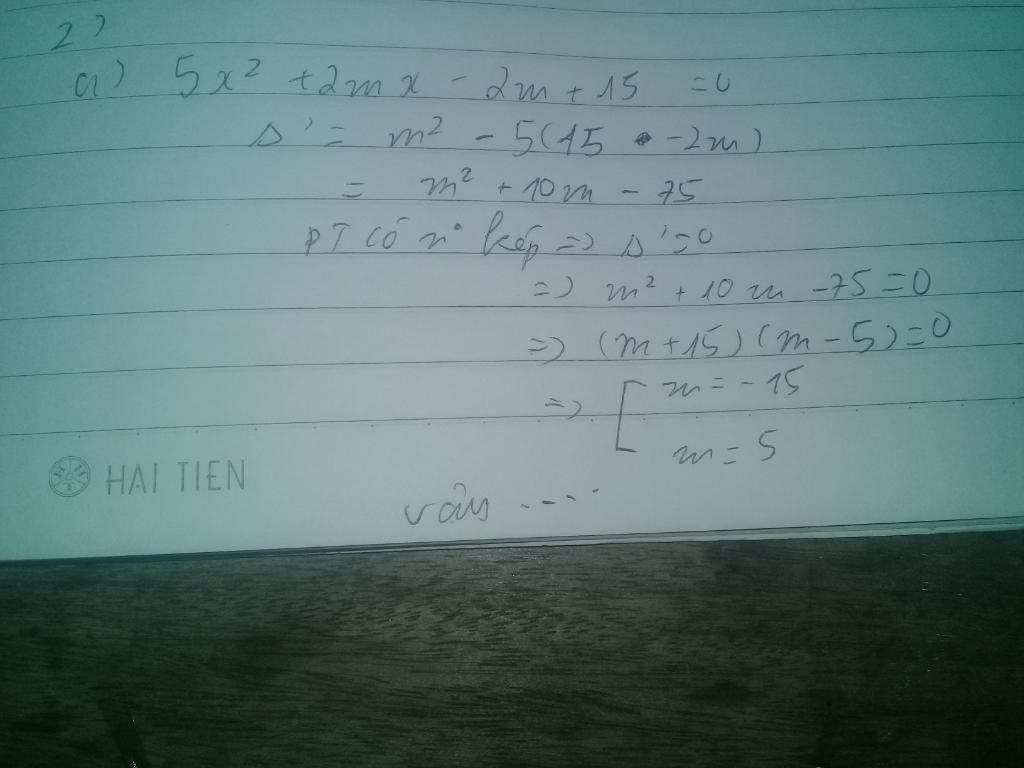 2)
a) 5x² + 2mx - 2m + 15 = 0
Δ' = m² - 5(15 - 2m)
= m² + 10m - 75
PT có n° kép => Δ' = 0
=> m² + 10m - 75 = 0
=> (m + 15)(m - 5) = 0
=> [ m = -15
m = 5
HAI TIEN
vậy ....